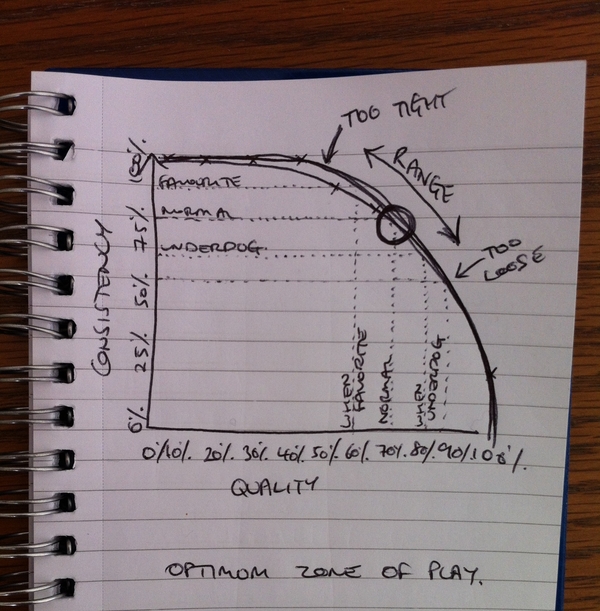 TOO TIGHT
RANGE
TOO
LOOSE
100%
FAVOURITE
NORMAL
75%
UNDERDOG
50%
25%
0%
CONSISTENCY
WHEN
FAVORITE
NORMAL
WHEN
UNDERDOG
0% 10% 20% 30% 40% 50% 60% 70% 80% 90% 100%
QUALITY
OPTIMOM ZONE OF PLAY.